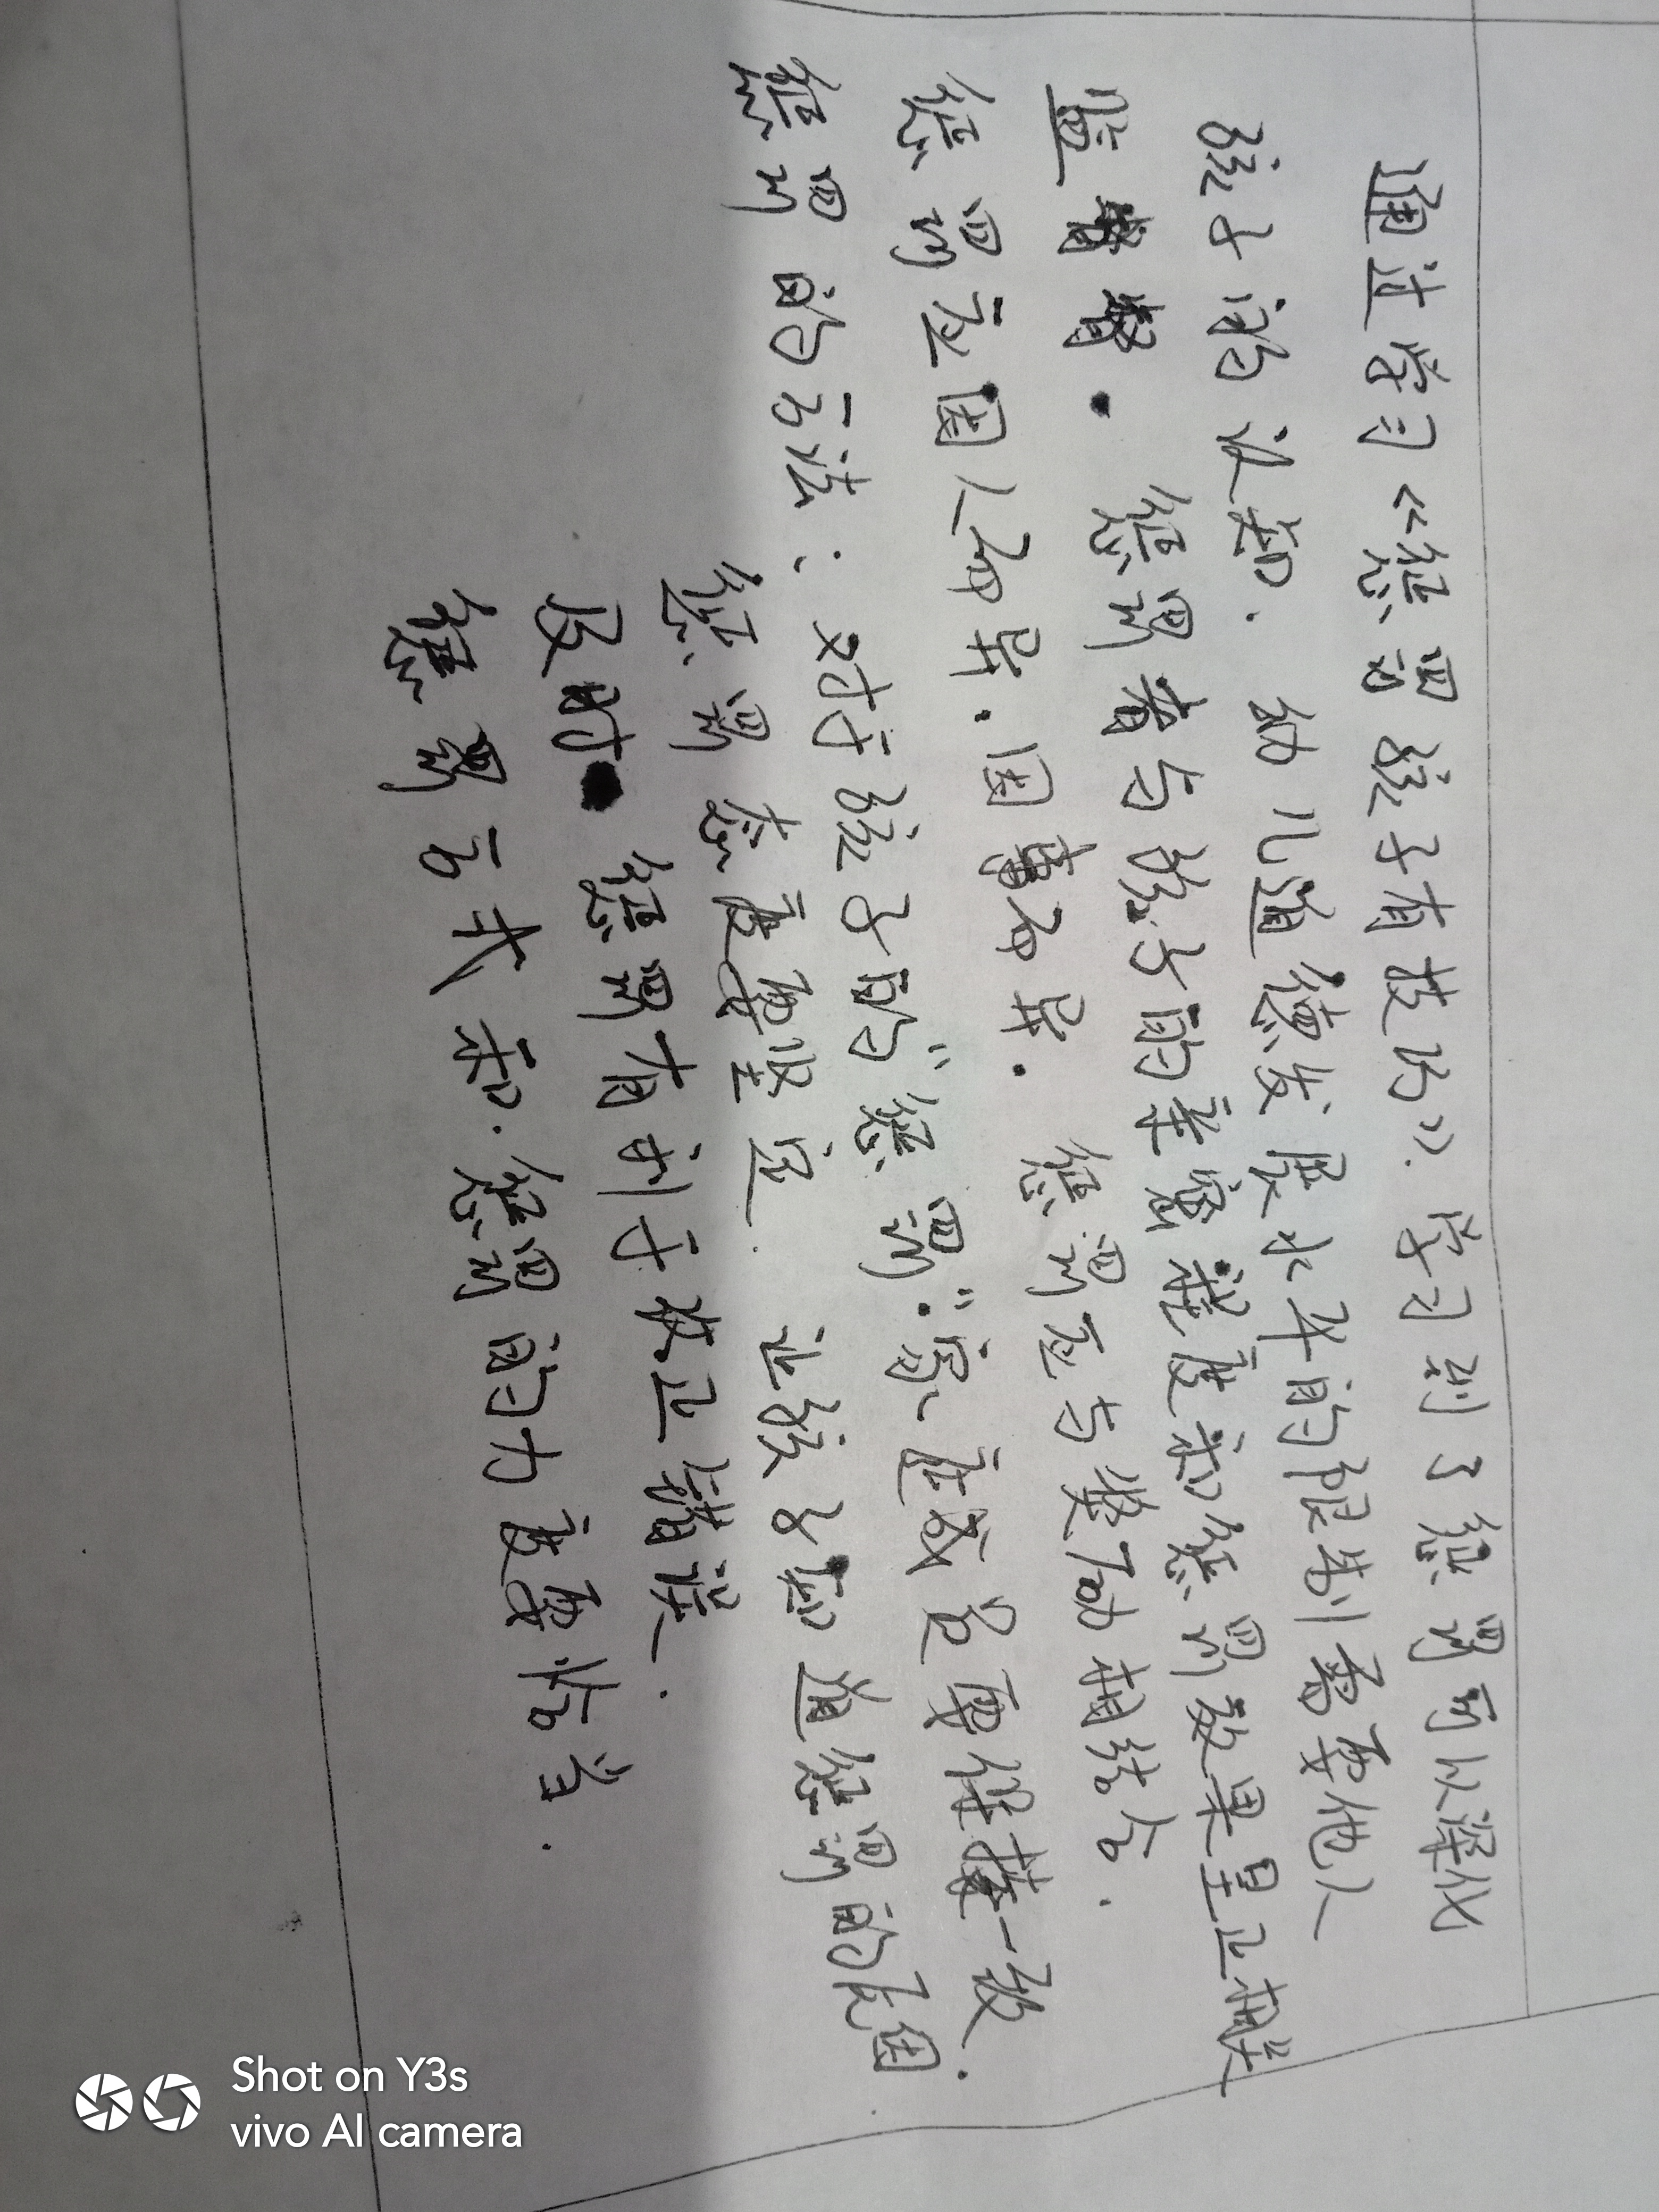 通过学习《惩罚孩子有技巧》.学习到了惩罚可以深化
孩子的认知.幼儿道德发展水平的限制需要他人
监督.惩罚者与孩子的亲密程度和惩罚效果呈正相关
惩罚应因人而异.因事而异.惩罚应与奖励相结合.
惩罚的方法:对于孩子的"惩罚".家庭成员要保持一致.
惩罚态度要坚定.让孩子知道惩罚的原因
及时惩罚有利于改正错误.
惩罚方式和.惩罚的力度要恰当.
Shot on Y3s
vivo AI camera